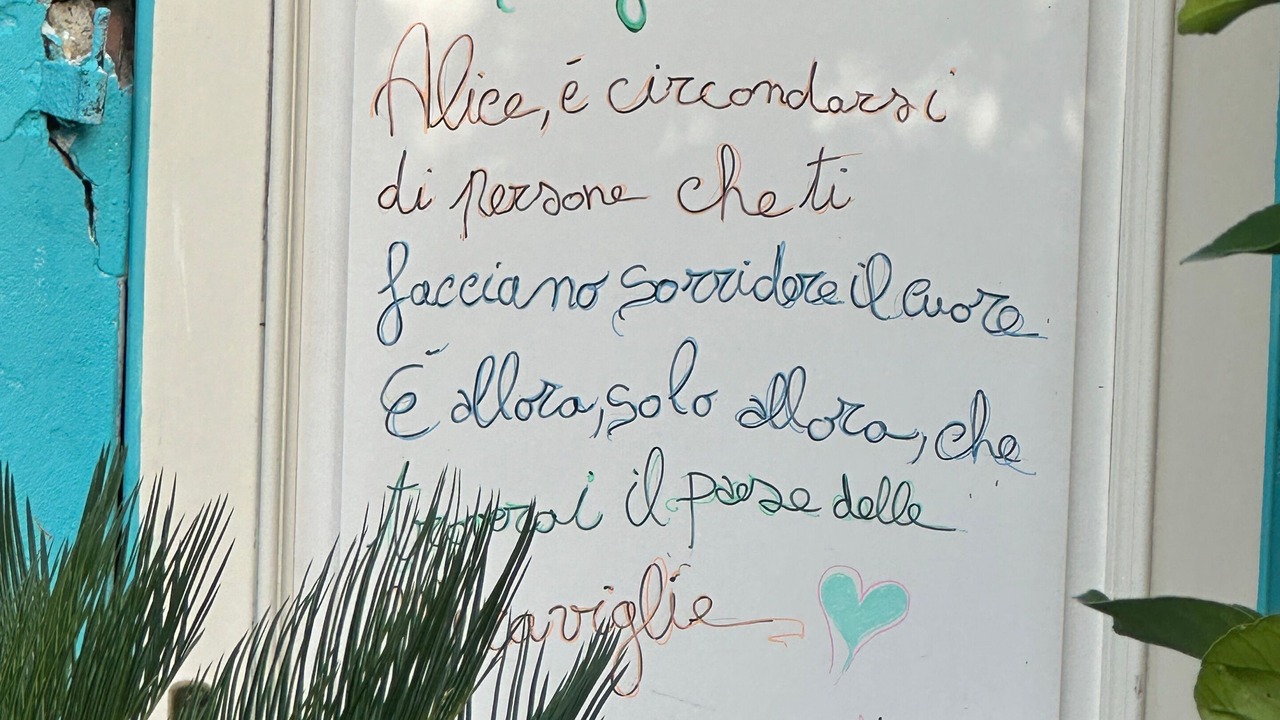 Alice, é circondarsi
di persone che ti
facciano sorridere il cuore
É allora, solo allora, che
troverai il paese delle
meraviglie